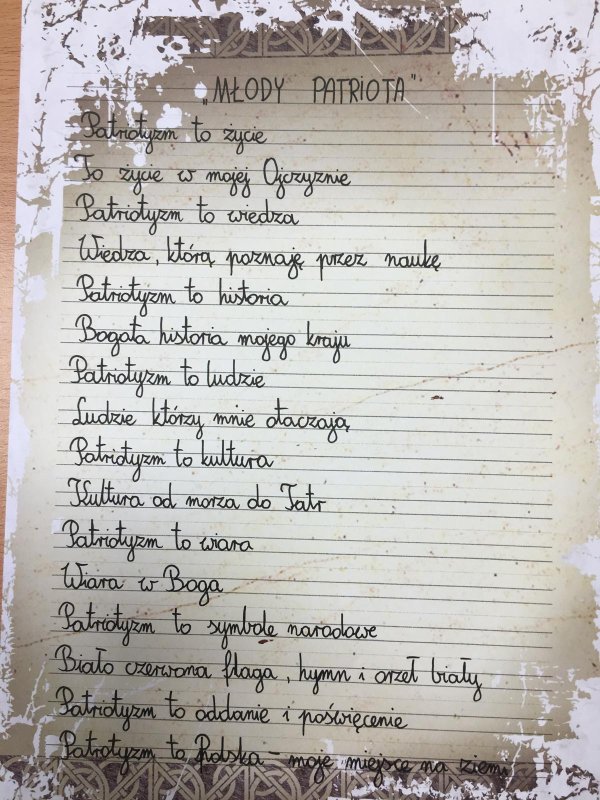 „MŁODY PATRIOTA"
Patriotyzm to życie
To życie w mojej Ojczyźnie
Patriotyzm to wiedza
Wiedza, którą poznaję przez naukę
Patriotyzm to historia
Bogata historia mojego kraju
Patriotyzm to ludzie
Ludzie którzy mnie otaczają
Patriotyzm to kultura
Kultura od morza do Tatr
Patriotyzm to wiara
Wiara w Boga
Patriotyzm to symbole narodowe
Biało czerwona flaga, hymn i orzeł biały
Patriotyzm to oddanie i poświęcenie
Patriotyzm to Polska - moje miejsce na ziemi